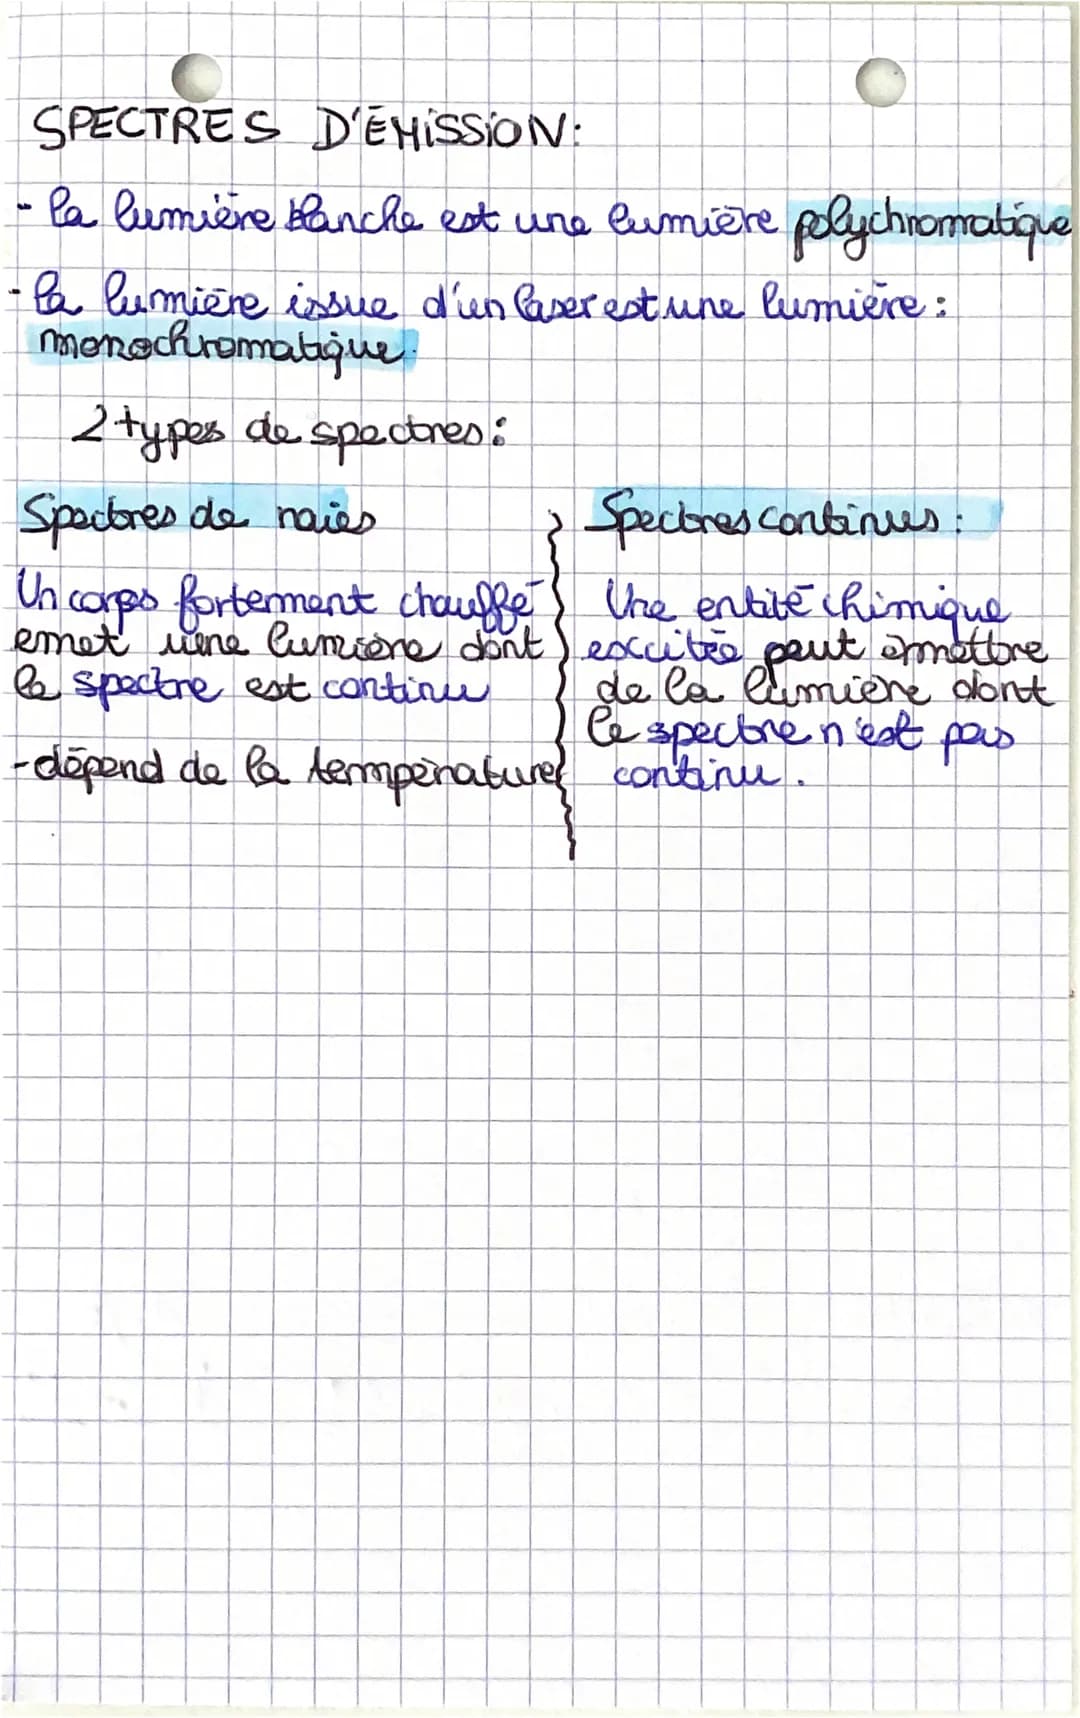 SPECTRES D'ÉMISSION:
- la lumière blanche est une lumière polychromatique
- la lumière issue d'un laser est une lumière :
monochromatique.
2 types de spectres :
Spectres de raies
Un corps fortement chauffé
emet une lumière dont
le spectre est continu
- dépend de la température
Spectres continus :
Une entité chimique
excitée peut émettre
de la lumière dont
le spectre n'est pas
continu .